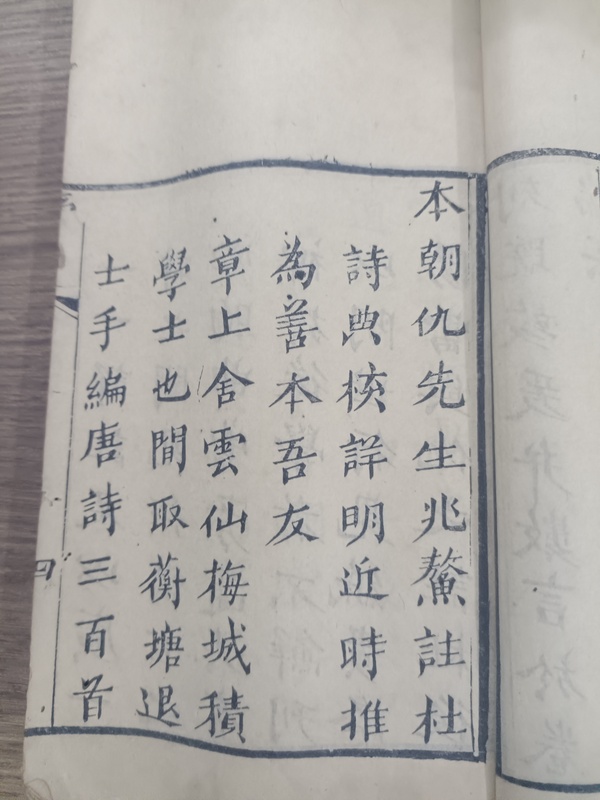 本朝仇先生兆鰲註杜
詩典核詳明近時推
為善本吾友
章上舍雲仙梅城積
學士也間取蘅塘退
士手編唐詩三百首
四